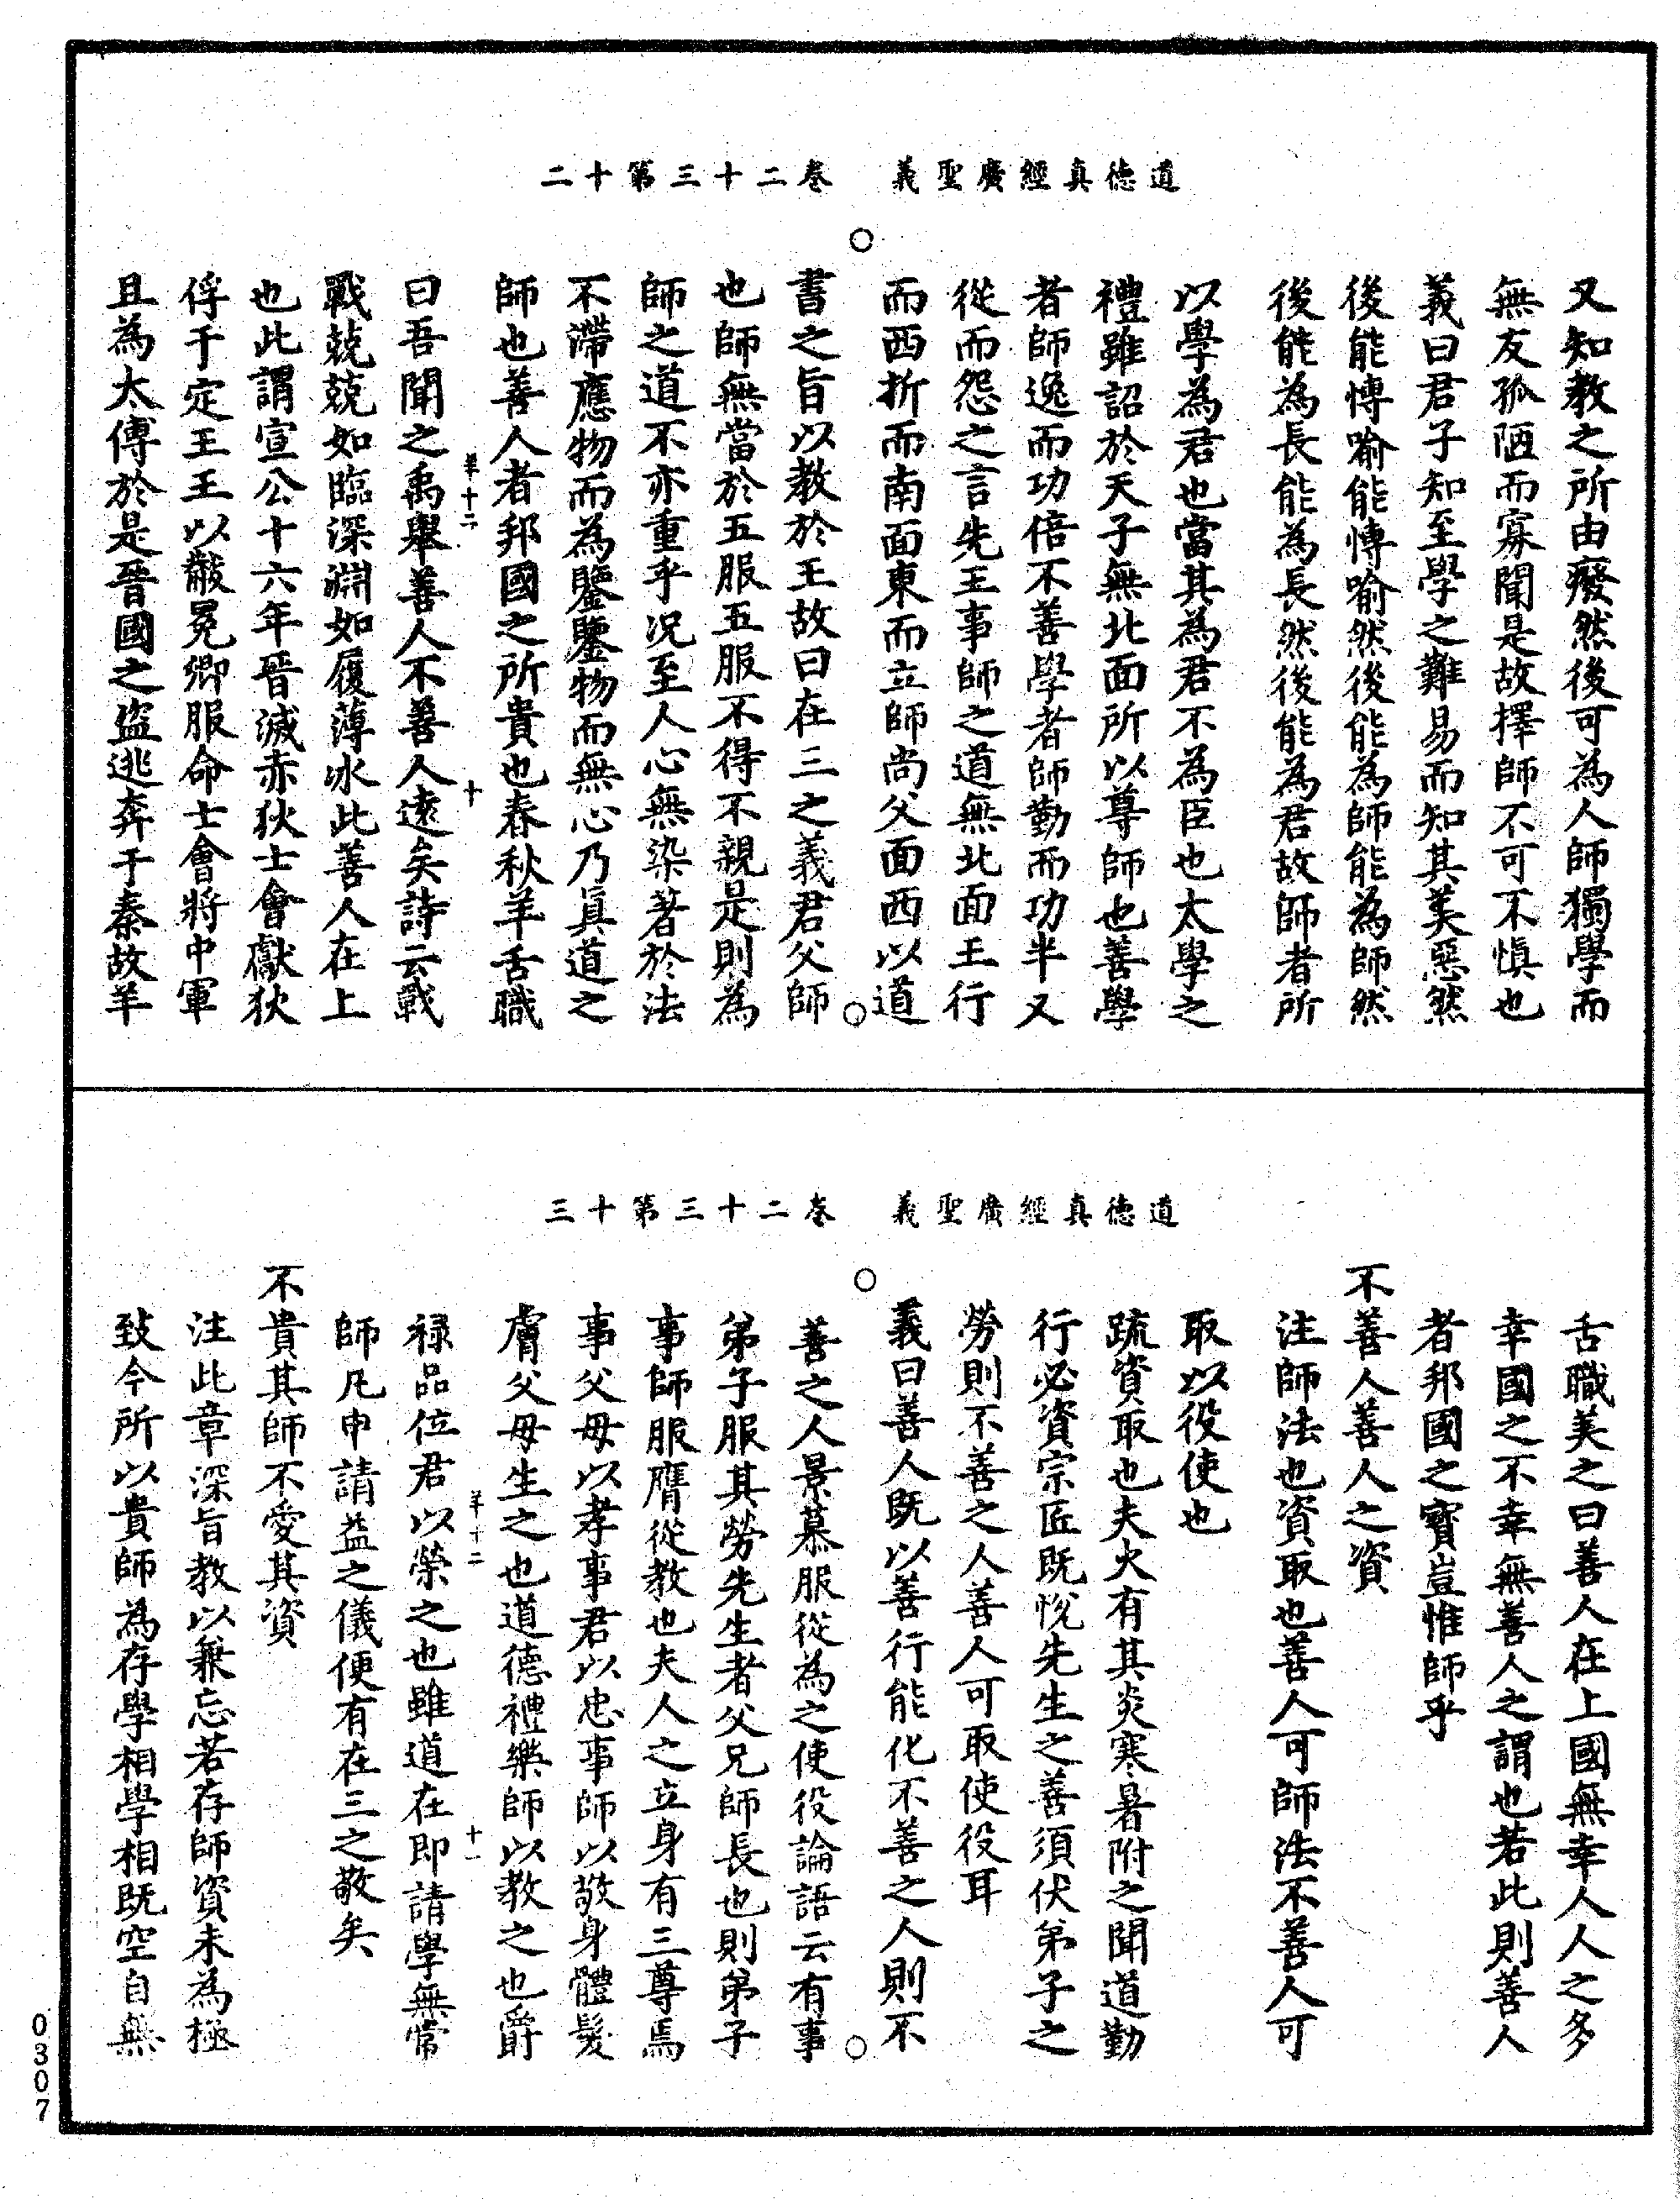 道德真經廣聖義　卷二十三第十二
又知教之所由癈然後可為人師獨學而
無友孤陋而寡聞是故擇師不可不慎也
義曰君子知至學之難易而知其美惡然
後能愽喻能愽喻然後能為師能為師然
後能為長能為長然後能為君故師者所
以學為君也當其為君不為臣也太學之
禮雖詔於天子無北面所以尊師也善學
者師逸而功倍不善學者師勤而功半又
從而怨之言先王事師之道無北面王行
而西折而南面東而立師尚父面西以道
書之旨以教於王故曰在三之義君父師
也師無當於五服五服不得不親是則為
師之道不亦重乎况至人心無染著於法
不滯應物而為鑒鑒物而無心乃真道之
師也善人者邦國之所貴也春秋羊舌職
羊十二　十
曰吾聞之禹舉善人不善人遠矣詩云戰
戰兢兢如臨深淵如履薄冰此善人在上
也此謂宣公十六年晉滅赤狄士會獻狄
俘于定王王以黻冕卿服命士會將中軍
且為太傅於是晉國之盜逃奔于秦故羊
道德真經廣聖義　卷二十三第十三
舌職美之曰善人在上國無幸人人之多
幸國之不幸無善人之謂也若此則善人
者邦國之寶豈惟師乎
不善人善人之資
注師法也資取也善人可師法不善人可
取以役使也
疏資取也夫火有其炎寒暑附之聞道勤
行必資宗匠既悅先生之善須伏弟子之
勞則不善之人善人可取使役耳
義曰善人既以善行能化不善之人則不
善之人景慕服從為之使役論語云有事
弟子服其勞先生者父兄師長也則弟子
事師服膺從教也夫人之立身有三尊焉
事父母以孝事君以忠事師以敬身體髮
膚父母生之也道德禮樂師以教之也爵
羊十二　十一
禄品位君以榮之也雖道在即請學無常
師凡申請益之儀便有在三之敬矣
不貴其師不愛其資
注此章深旨教以兼忘若存師資未為極
致今所以貴師為存學相學相既空自無
0307